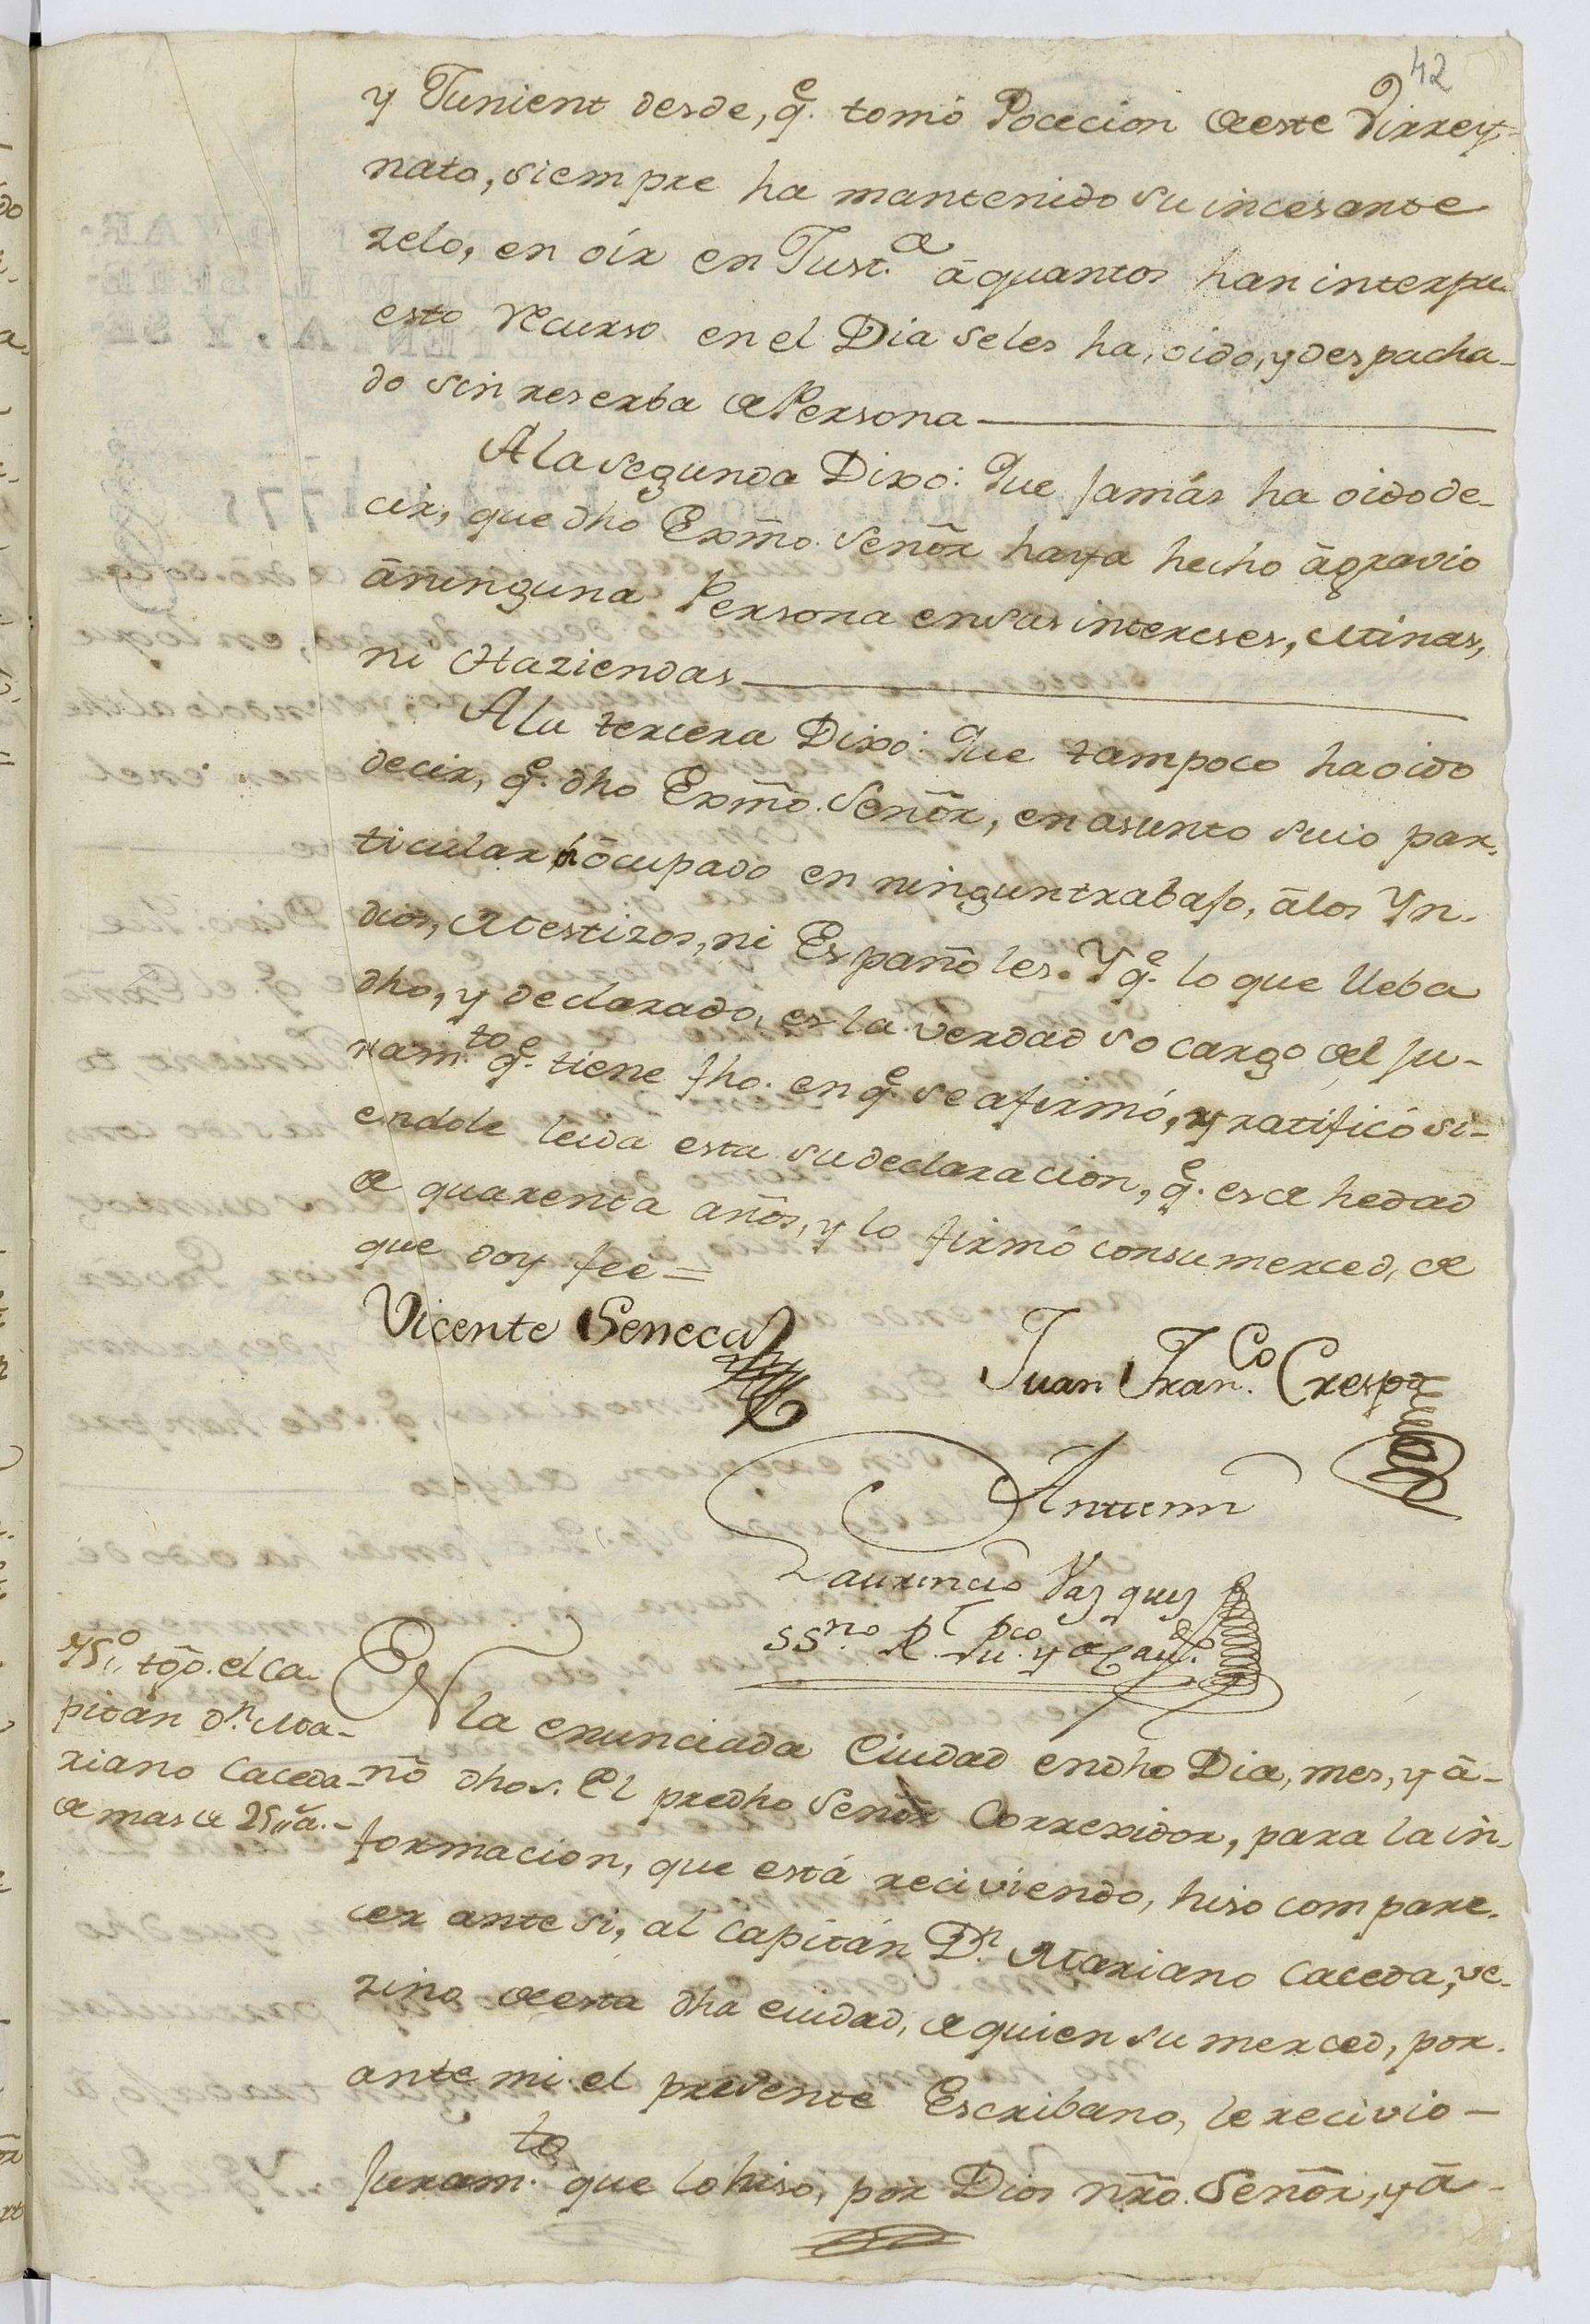 42
y Junient desde, q.e tomó Pocecion de este Virrey-
nato, siempre ha mantenido su incesante
zelo, en oír en Just.a á quantos han interpu-
esto recurso en el Dia se les ha, oido, y despacha-
do sin reserba de Persona
A la segunda Dixo: Que jamás ha oido de-
cir, que dho Exmo. Señor haya hecho ágravio
á ninguna Persona en sus intereses, Minas,
ni Haziendas
A la tercera Dixo: Que tampoco ha oido
decir, q.e dho Exmo. Señor, en asunto suio par-
ticular ócupado en ningun trabajo, á los Yn-
dios, Mestizos, ni Españoles. Y q.e lo que lleba
dho, y declarado, es la verdad so cargo del ju-
ram.to q.e tiene fho. en q.e se afirmó, y ratificó si-
endole leida esta su declaracion, q.e es de hedad
de quarenta años, y lo firmó con su merced, de
que doy feé =
Vicente Seneca
Juan Fran.co Crespo
Ante mi
Laurencio Vazquez
SS.no R.l Pu.co y de Cav.do
45,, tgo. el Ca
pitan d.n Ma-
riano Caceda-
de mas de 25,, a.-
EN la enunciada Ciudad en dho Dia, mes, y á-
ño dhos. El predho Señor Correxidor, para la in-
formacion, que está reciviendo, hiso compare-
cer ante si, al Capitán D.n Mariano Caceda, ve-
zino de esta dha ciudad, de quien su merced, por-
ante mi el presente Escribano, le recivio-
juram.to que lo hiso, por Dios nro. Señor, y á-